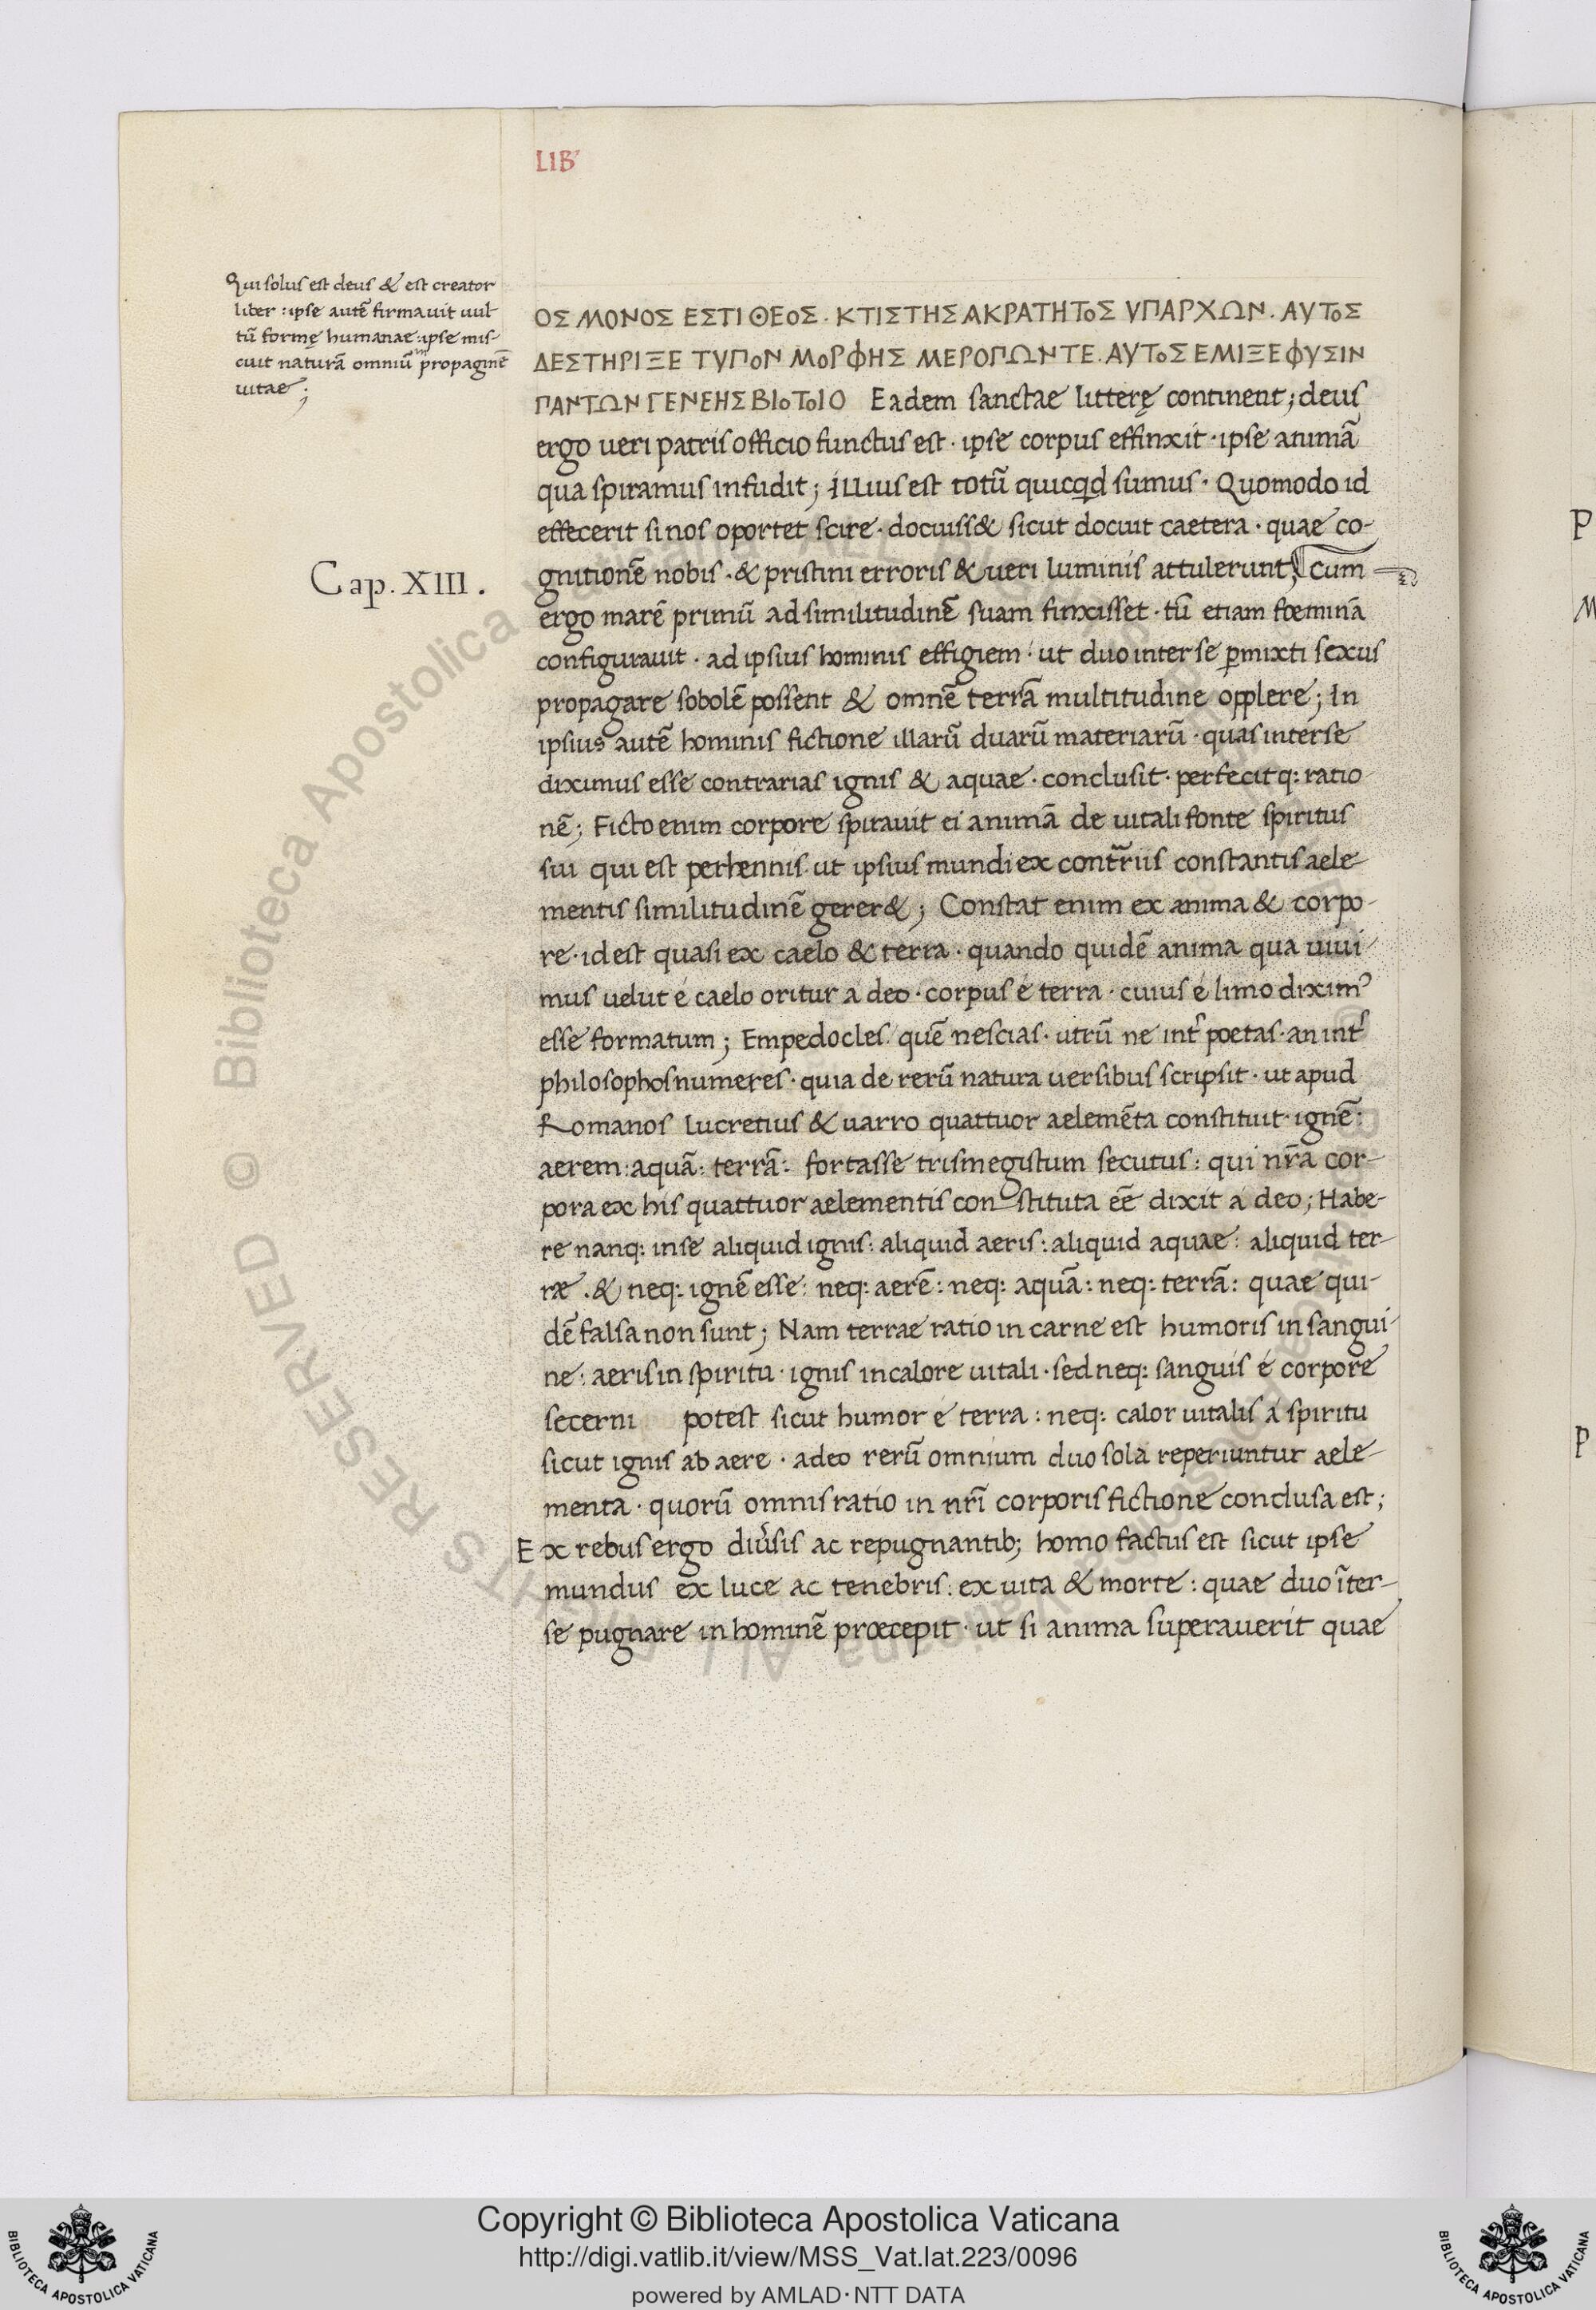 LIB
Qui solus est deus & est creator
liber : ipse autē firmauit uul
tū formę humanae : ipse mis-
cuit naturā omniū propaginē
uitae ;
ΟΣ ΜΟΝΟΣ ΕΣΤΙ ΘΕΟΣ · ΚΤΙΣΤΗΣ ΑΚΡΑΤΗΤΟΣ ΥΠΑΡΧΩΝ · ΑΥΤΟΣ
ΔΕΣΤΗΡΙΞΕ ΤΥΠΟΝ ΜΟΡΦΗΣ ΜΕΡΟΠΩΝΤΕ · ΑΥΤΟΣ ΕΜΙΞΕ ΦΥΣΙΝ
ΠΑΝΤΩΝ ΓΕΝΕΗΣ ΒΙΟΤΟΙΟ Eadem sanctae litterę continent ; deus
ergo ueri patris officio functus est · ipse corpus effinxit · ipse animā
qua spiramus infudit ; illius est totū quicqd sumus · Quomodo id
effecerit si nos oportet scire · docuiss& sicut docuit caetera · quae co-
gnitionē nobis · & pristini erroris & ueri luminis attulerunt ; Cum
Cap. XIII .
ergo marē primū ad similitudinē suam finxisset · tū etiam fœminā
configurauit · ad ipsius hominis effigiem · ut duo inter se ꝑmixti sexus
propagare sobolē possent & omnē terrā multitudine opplere ; In
ipsius autē hominis fictione illarū duarū materiarū · quas inter se
diximus esse contrarias ignis & aquae · conclusit · perfecitq: ratio-
nē ; Ficto enim corpore spirauit ei animā de uitali fonte spiritus
sui qui est perhennis · ut ipsius mundi ex contr̄iis constantis aele-
mentis similitudinē gerer& ; Constat enim ex anima & corpo-
re · id est quasi ex caelo & terra · quando quidē anima qua uiui-
mus uelut é caelo oritur á deo · corpus é terra · cuius é limo diximꝰ
esse formatum ; Empedocles · quē nescias · utrū ne int̄ poetas · an int̄
philosophos numeres · quia de rerū natura uersibus scripsit · ut apud
Romanos Lucretius & uarro quattuor aelemēta constituit · ignē :
aerem : aquā : terrā : fortasse trismegistum secutus : qui nr̄a cor-
pora ex his quattuor aelementis constituta eē dixit á deo ; Habe-
re nanq: in se aliquid ignis : aliquid aeris : aliquid aquae : aliquid ter-
ræ · & neq: ignē esse : neq: aerē : neq: aquā : neq: terrā : quae qui-
dē falsa non sunt ; Nam terrae ratio in carne est humoris in sangui-
ne : aeris in spiritu · ignis in calore uitali · sed neq: sanguis é corpore
secerni potest sicut humor é terra : neq: calor uitalis á spiritu
sicut ignis ab aere · adeo rerū omnium duo sola reperiuntur aele-
menta · quorū omnis ratio in nr̄i corporis fictione conclusa est ;
Ex rebus ergo diu̓sis ac repugnantib; homo factus est sicut ipse
mundus ex luce ac tenebris : ex uita & morte : quae duo īter-
se pugnare in hominē præcepit · ut si anima superauerit quae
P
M
P
© Biblioteca Apostolica Vaticana ALL RIGHTS RESERVED
Copyright © Biblioteca Apostolica Vaticana
http://digi.vatlib.it/view/MSS_Vat.lat.223/0096
powered by AMLAD · NTT DATA
BIBLIOTECA APOSTOLICA VATICANA
BIBLIOTECA APOSTOLICA VATICANA